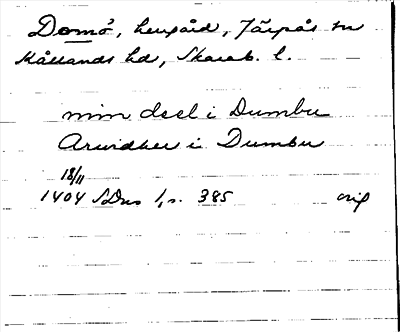 Domö, herrgård, Järpås sn
Kållands hd, Skarab. l.
min deel i Dumbu
Arwidher i Dumbu
18/11
1404 SDns 1, s. 385 orig